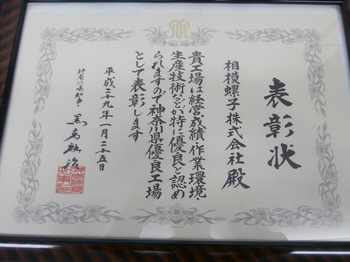 表彰状
相模螺子株式会社殿
貴工場は経営成績、作業環境
生産技術などが特に優良と認め
られますので神奈川県優良工場
として表彰します
平成二十九年一月二十五日
神奈川県知事 黒岩祐治